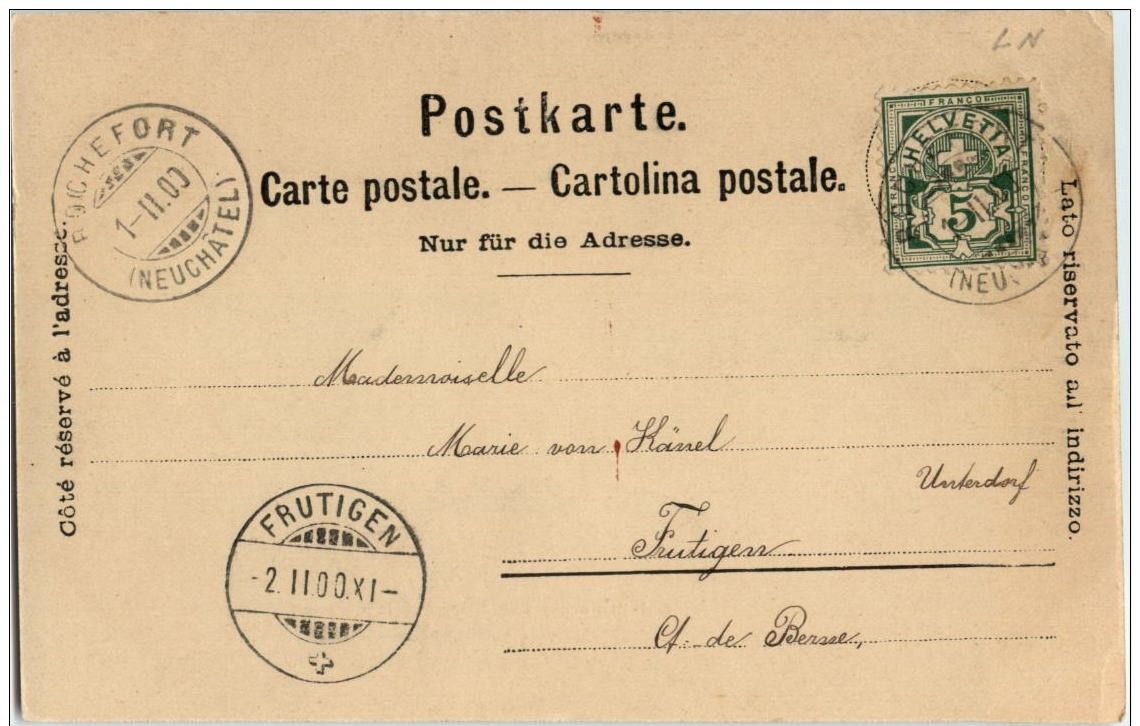 LN
Postkarte.
Carte postale. — Cartolina postale.
Nur für die Adresse.
Côté réservé à l'adresse.
Lato riservato all' indirizzo.
ROCHEFORT
1-II.00
(NEUCHÂTEL)
FRANCO
HELVETIA
FRANCO
FRANCO
5
(NEU
Mademoiselle
Marie von Känel
Unterdorf
Frutigen
Ct. de Berne,
FRUTIGEN
-2.II.00.XI-